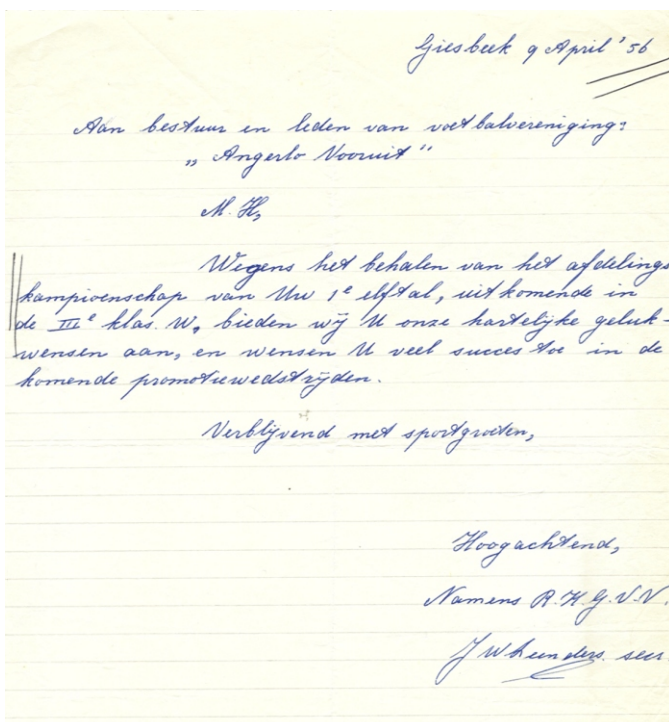 Giesbeek 9 April '56
Aan bestuur en leden van voetbalvereniging:
„ Angerlo Vooruit “
M. H,
Wegens het behalen van het afdelings
kampioenschap van Uw 1e elftal, uitkomende in
de IIIe klas. W, bieden wij U onze hartelijke geluk-
wensen aan, en wensen U veel succes toe in de
komende promotiewedstrijden.
Verblijvend met sportgroeten,
Hoogachtend,
Namens R.K.G.V.V.
J W Leenders. secr